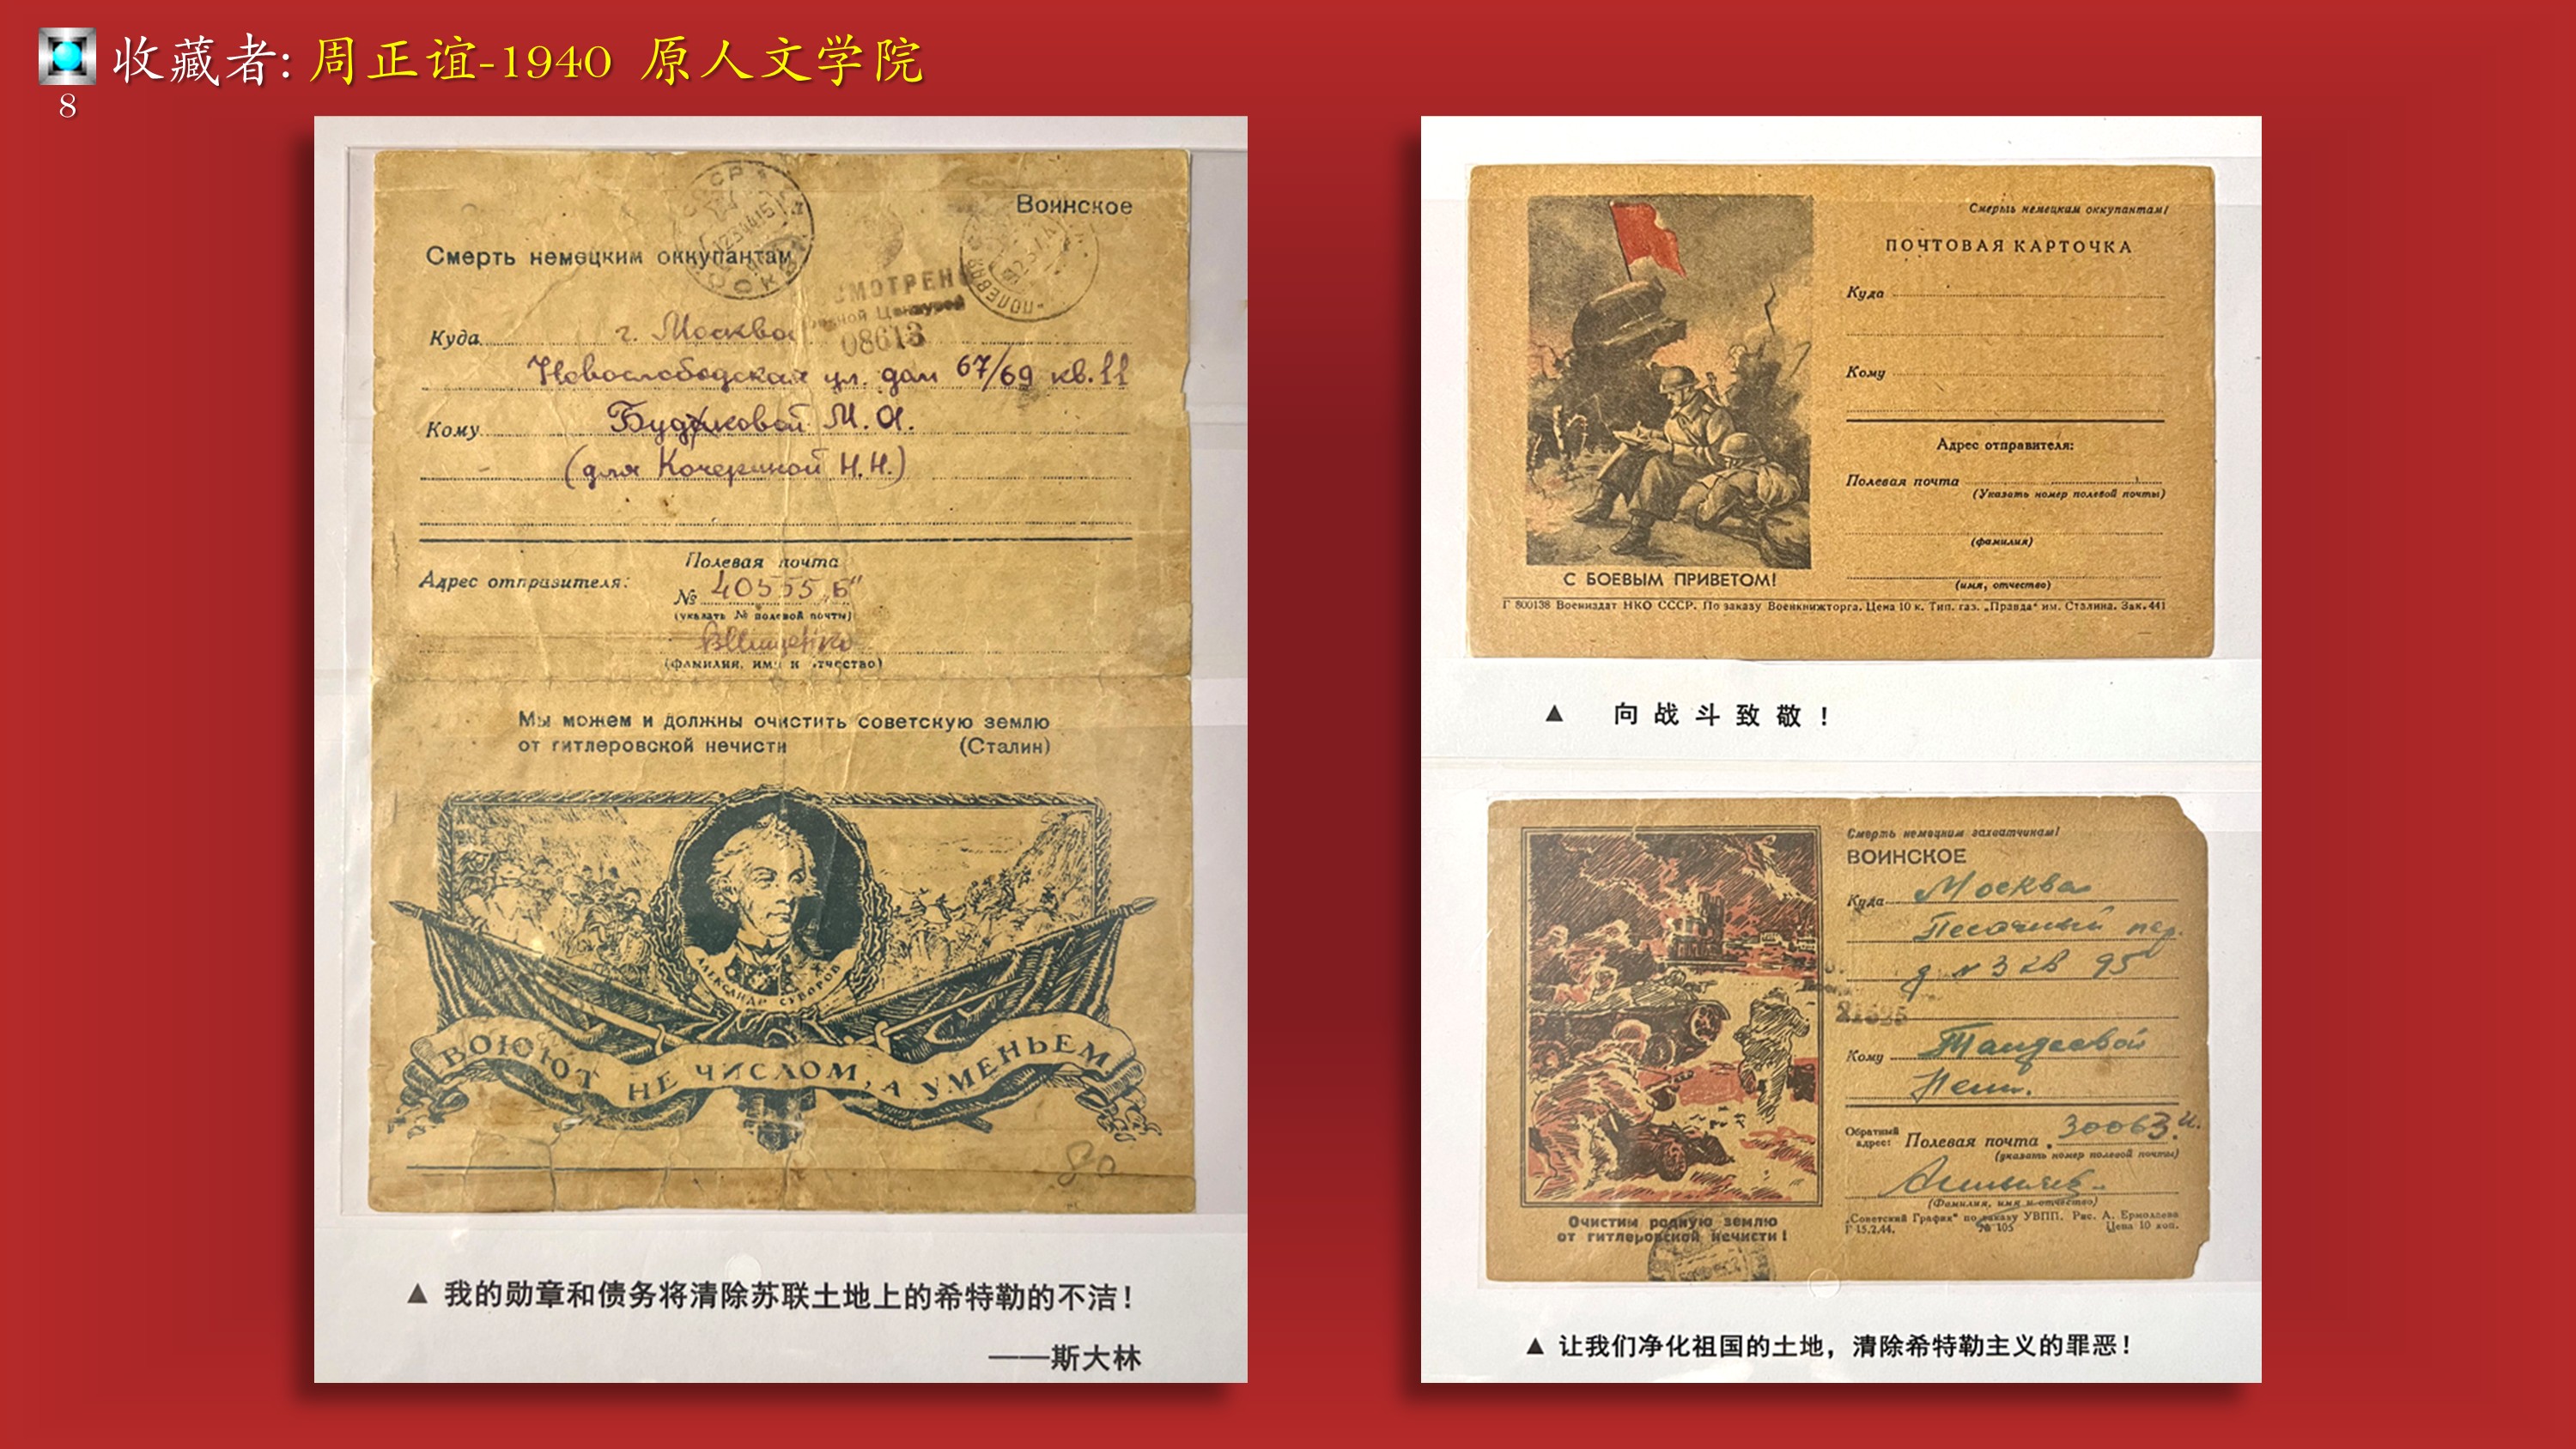 收藏者: 周正谊-1940 原人文学院
8
Воинское
Смерть немецким оккупантам
Куда г. Москва
Новослободская ул. дом 67/69 кв. 11
Кому
М. А.
(для Кочериной Н.Н.)
08613
Полевая почта
Адрес отправителя:
№ 40555 „Б"
(указать № полевой почты)
(фамилия, имя и отчество)
Мы можем и должны очистить советскую землю
от гитлеровской нечисти (Сталин)
АЛЕКСАНДР СУВОРОВ
ВОЮЮТ НЕ ЧИСЛОМ, А УМЕНЬЕМ
▲ 我的勋章和债务将清除苏联土地上的希特勒的不洁！
——斯大林
Смерть немецким оккупантам!
ПОЧТОВАЯ КАРТОЧКА
Куда
Кому
Адрес отправителя:
Полевая почта
(Указать номер полевой почты)
(фамилия)
(имя, отчество)
С БОЕВЫМ ПРИВЕТОМ!
Г 800138 Воениздат НКО СССР. По заказу Военкнижторга. Цена 10 к. Тип. газ. „Правда" им. Сталина. Зак. 441
▲ 向战斗致敬！
Смерть немецким захватчикам!
ВОИНСКОЕ
Куда Москва
Песочный пер.
д N 3 кв 95
Кому
Обратный адрес: Полевая почта 30063 и.
(указать номер полевой почты)
(Фамилия, имя и отчество)
„Советский График" по заказу УВПП. Рис. А. Ермолаева
Г 15.2.44. № 105 Цена 10 коп.
Очистим родную землю
от гитлеровской нечисти!
▲ 让我们净化祖国的土地，清除希特勒主义的罪恶！